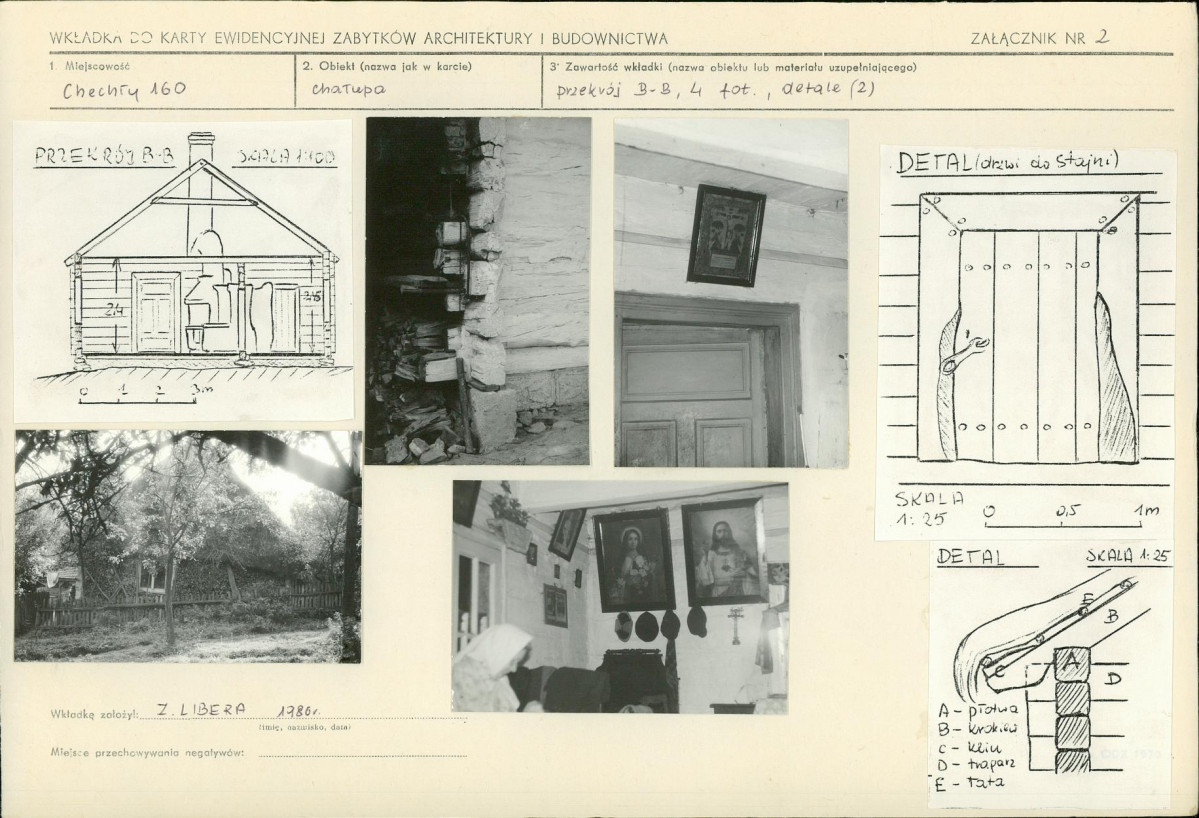 WKŁADKA DO KARTY EWIDENCYJNEJ ZABYTKÓW ARCHITEKTURY I BUDOWNICTWA
ZAŁĄCZNIK NR 2
1. Miejscowość
Chechły 160
2. Obiekt (nazwa jak w karcie)
chałupa
3. Zawartość wkładki (nazwa obiektu lub materiału uzupełniającego)
przekrój B-B, 4 fot., detale (2)
PRZEKRÓJ B-B SKALA 1:100
2,4
2,45
0 1 2 3m
DETAL (drzwi do stajni)
SKALA
1:25
0 0,5 1m
DETAL SKALA 1:25
E
B
C
A
D
A - płatwa
B - krokiew
C - klin
D - traparz
E - łata
Wkładkę założył: Z. LIBERA 1986r.
(imię, nazwisko, data)
Miejsce przechowywania negatywów: